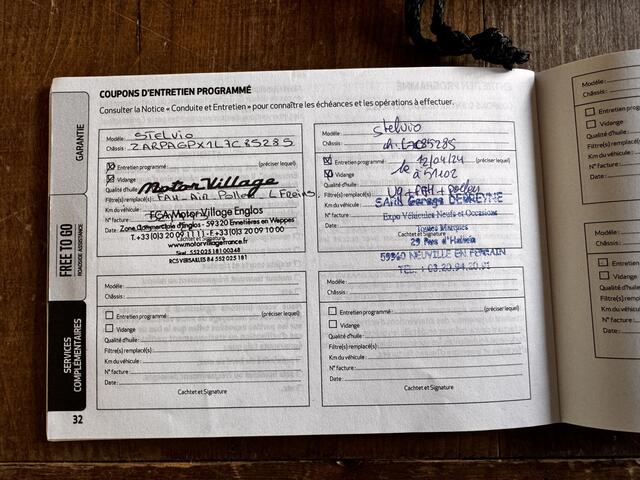 COUPONS D'ENTRETIEN PROGRAMMÉ
Consulter la Notice « Conduite et Entretien » pour connaître les échéances et les opérations à effectuer.
GARANTIE
FREE TO GO
ROADSIDE ASSISTANCE
SERVICES
COMPLÉMENTAIRES
32
Modèle : STELVIO
Châssis : ZARPAGPX1L7C85285
Entretien programmé : (préciser lequel)
Vidange
Qualité d'huile :
Motor Village
Filtre(s) remplacé(s) : FAH - AIR Pollen L Freins
Km du véhicule :
FCA Motor Village Englos
N° facture :
Date :
Zone Commerciale d'Englos - 59320 Ennetières en Weppes
Cachet et Signature
T. +33 (0)3 20 09 11 11 - F. +33 (0)3 20 09 10 00
www.motorvillagefrance.fr
Siret 552 025 181 00348
RCS VERSAILLES B4 552 025 181
Modèle : Stelvio
Châssis : ch. L7C85285
Entretien programmé : le 12/04/24 (préciser lequel)
Vidange à 51102
Qualité d'huile :
Filtre(s) remplacé(s) : + pollen
Km du véhicule :
SARL Garage DEBREYNE
N° facture :
Expo Véhicules Neufs et Occasions
Date :
Toutes Marques
Cachet et Signature
59960 NEUVILLE EN FERRAIN
Modèle :
Châssis :
Entretien programmé : (préciser lequel)
Vidange
Qualité d'huile :
Filtre(s) remplacé(s) :
Km du véhicule :
N° facture :
Date :
Cachet et Signature
Modèle :
Châssis :
Entretien programmé : (préciser lequel)
Vidange
Qualité d'huile :
Filtre(s) remplacé(s) :
Km du véhicule :
N° facture :
Date :
Cachet et Signature
Modèle :
Châssis :
Entretien
Vidange
Qualité d'huile
Filtre(s) remp
Km du véhicule
N° facture :
Date :
Modèle :
Châssis :
Entretien
Vidange
Qualité d'huile
Filtre(s) remp
Km du véhicule
N° facture :
Date :